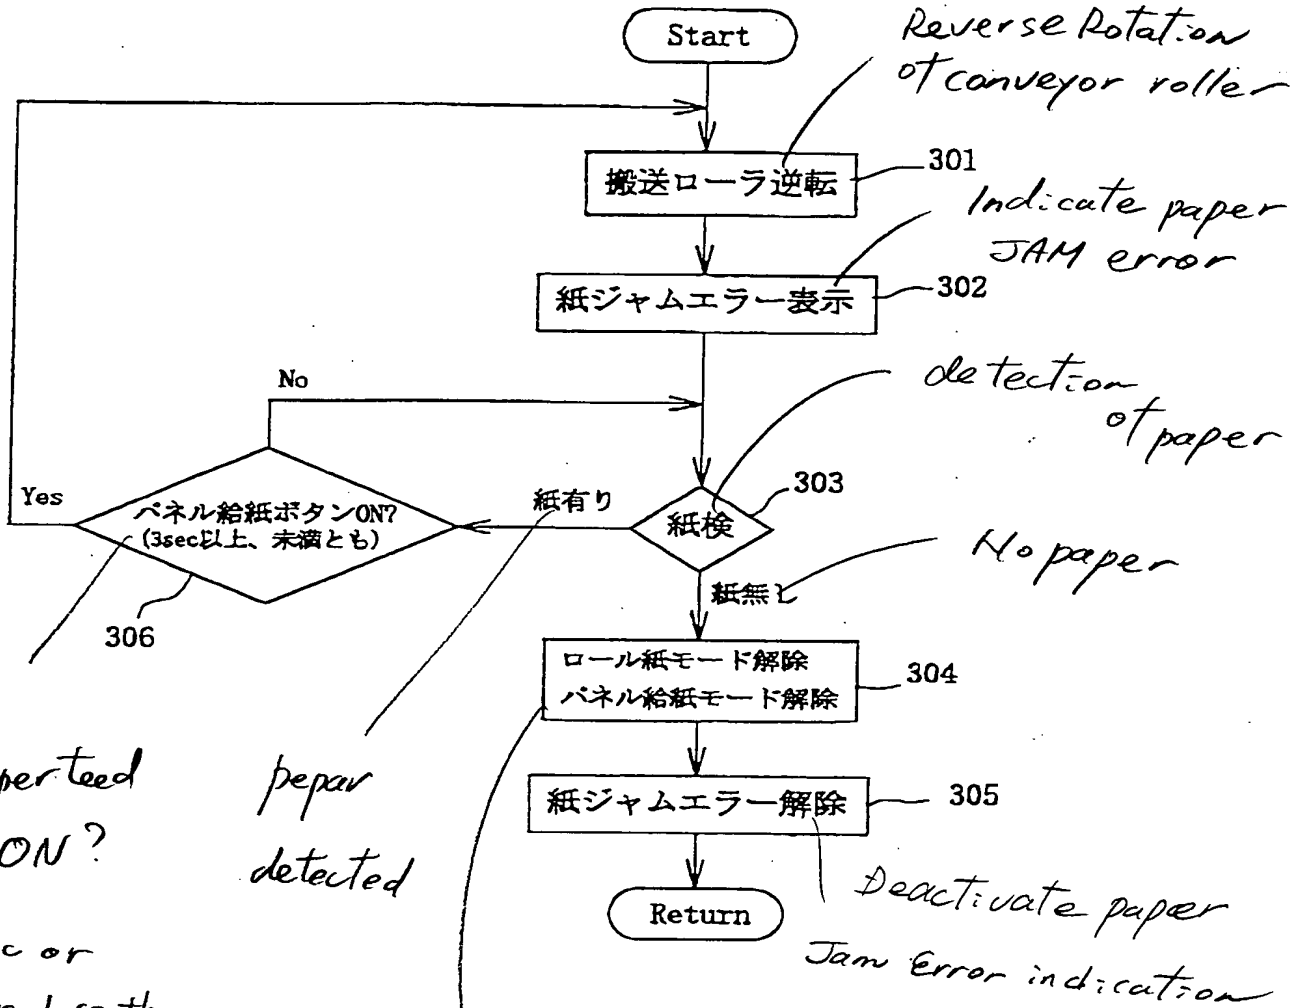 Start
Reverse Rotation
of conveyor roller
搬送ローラ逆転
301
Indicate paper
JAM error
紙ジャムエラー表示
302
No
detection
of paper
Yes
パネル給紙ボタンON?
(3sec以上、未満とも)
306
紙有り
紙検
303
No paper
紙無し
ロール紙モード解除
パネル給紙モード解除
304
pepar
detected
ON?
紙ジャムエラー解除
305
Return
Deactivate paper
Jam Error indication
or